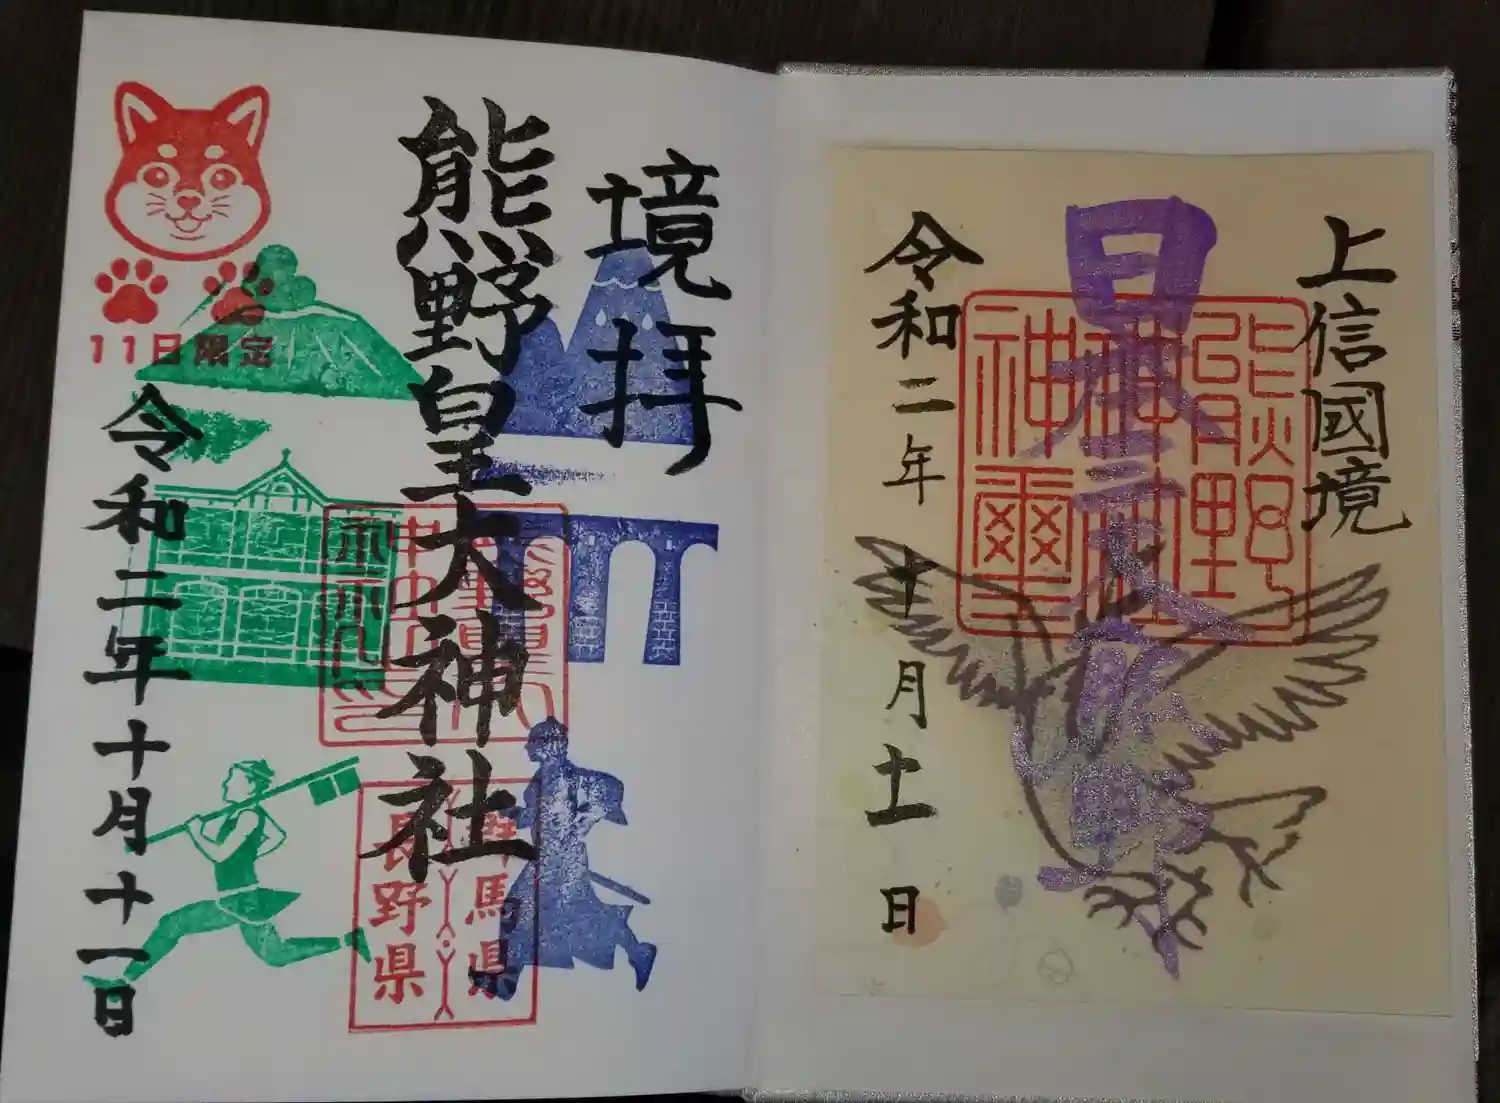 上信國境
日本三大熊野
熊野
神社
神璽
令和二年十月十一日
境拝
熊野皇大神社
群馬県
長野県
11日限定
令和二年十月十一日